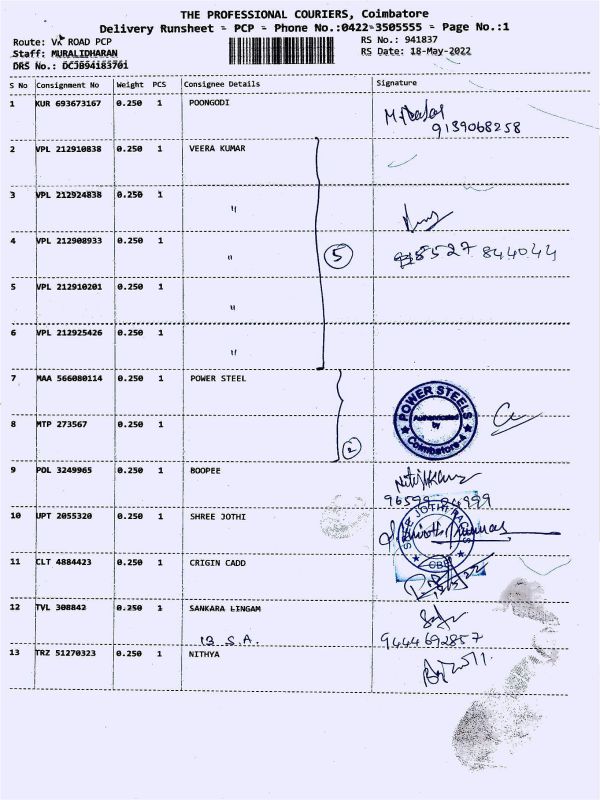 THE PROFESSIONAL COURIERS, Coimbatore
Delivery Runsheet - PCP - Phone No.:0422-3505555 - Page No.:1
Route: VK ROAD PCP
RS No.: 941837
Staff: MURALIDHARAN
RS Date: 18-May-2022
DRS No.: DCJB94183701
S No Consignment No Weight PCS Consignee Details Signature
1 KUR 693673167 0.250 1 POONGODI
9139068258
2 VPL 212910838 0.250 1 VEERA KUMAR
3 VPL 212924838 0.250 1 "
4 VPL 212908933 0.250 1 " 5 8527844044
5 VPL 212910201 0.250 1 "
6 VPL 212925426 0.250 1 "
7 MAA 566080114 0.250 1 POWER STEEL
POWER STEELS
Authenticated
by
Coimbatore-4
8 MTP 273567 0.250 1
2
9 POL 3249965 0.250 1 BOOPEE
10 UPT 2055320 0.250 1 SHREE JOTHI
11 CLT 4884423 0.250 1 CRIGIN CADD
12 TVL 308842 0.250 1 SANKARA LINGAM
B S.A. 9444692857
13 TRZ 51270323 0.250 1 NITHYA